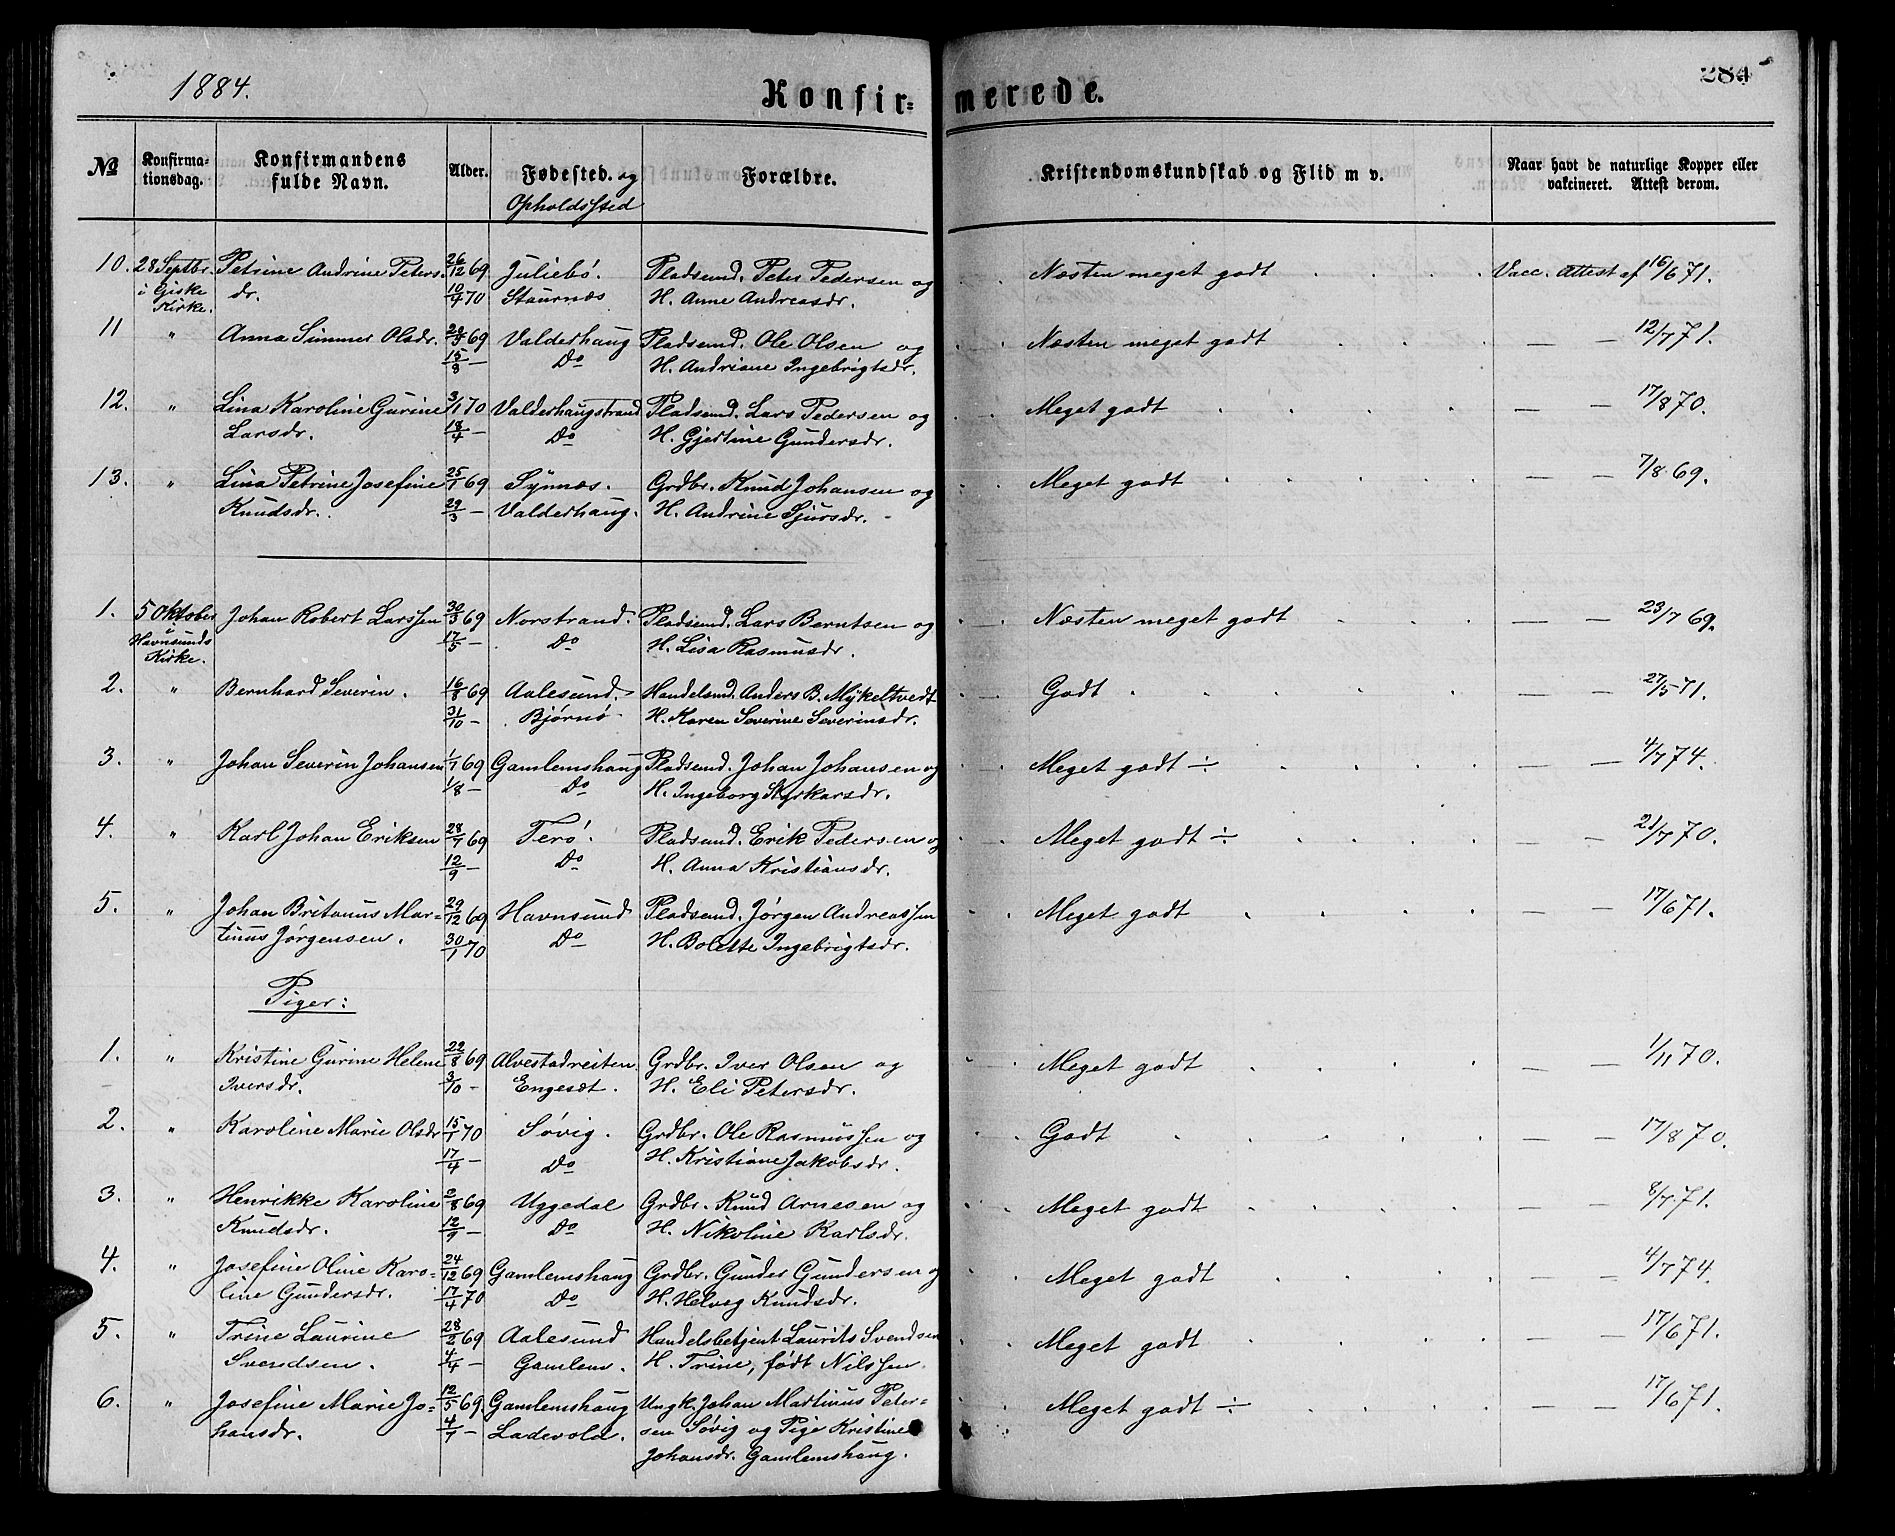 1884.
Konfir-
merede.
284
No
Konfirma-
tionsdag.
Konfirmandens
fulde Navn.
Alder.
Fødested. og
Opholdssted
Forældre.
Kristendomskundskab og Flid m v.
Naar havt de naturlige Kopper eller
vakcineret. Attest derom.
10. 28 Septbr. Petrine Andrine Peters- 26/12 69 Juliebø. Pladsmd. Peter Pedersen og Næsten meget godt Vacc. Attest af 16/6 71.
i Giske dr. 10/4 70 Staurnæs H. Anne Andreasdr.
Kirke.
11 " Anna Simmer Olsdr. 69 Valderhaug Pladsmd. Ole Olsen og Næsten meget godt — — 12/7 71.
15/8 — Do H. Andriane Ingebrigtsdr.
12. " Lina Karoline Gurine 3/1 70 Valderhaugstrand Pladsmd. Lars Pedersen og Meget godt — — 17/8 70.
Larsdr. 18/4 — Do H. Gjertine Gundersdr.
13. " Lina Petrine Josefine 25/1 69 Synnæs. Grdbr. Knud Johansen og Meget godt — — 7/8 69.
Knudsdr. 29/3 — Valderhaug. H. Andrine Sjursdr.
1. 5 Oktober Johan Robert Larssen 30/3 69 Norstrand. Pladsmd. Lars Berntsen og Næsten meget godt — — 23/7 69.
i Havnsunds 17/5 — Do H. Lisa Rasmusdr.
Kirke.
2. " Bernhard Severin. 16/8 69 Aalesund. Handelsmd. Anders B. Mykeltvedt Godt — — 27/5 71.
31/10 — Bjørnø H. Karen Severine Severinsdr.
3. " Johan Severin Johansen 1/7 69 Gamlemshaug Pladsmd. Johan Johansen og Meget godt ÷ — — 4/7 74.
1/8 — Do H. Ingeborg Styrkarsdr.
4. " Karl Johan Eriksen 28/7 69 Terø. Pladsmd. Erik Pedersen og Meget godt ÷ — — 21/7 70.
12/9 — Do H. Anna Kristiansdr.
5. " Johan Britanus Mar- 29/12 69 Havnsund Pladsmd. Jørgen Andreassen Meget godt — — 17/6 71.
tinus Jørgensen. 30/1 70 Do H. Bolette Ingebrigtsdr.
Piger:
1. " Kristine Gurine Helene 22/8 69 Alvestadreiten Grdbr. Iver Olsen og Meget godt — — 1/11 70.
Iversdr. 3/10 — Engesæt. H. Eli Petersdr.
2. " Karoline Marie Olsdr 15/1 70 Søvig. Grdbr. Ole Rasmussen og Godt — — 17/8 70.
17/4 — Do H. Kristiane Jakobsdr.
3. " Henrikke Karoline 69 Uggedal Grdbr. Knud Arnesen og Meget godt — — 8/7 71.
Knudsdr. 12/9 — Do H. Nikoline Karlsdr.
4. " Josefine Oline Karo- 24/12 69 Gamlemshaug Grdbr. Gunder Gundersen og Meget godt — — 4/7 74.
line Gundersdr. 17/4 70 Do H. Helveg Knudsdr.
5. " Trine Laurine 28/2 69 Aalesund Handelsbetjent Laurits Svendsen Meget godt — — 17/6 71.
Svendsen. 4/4 — Gamlem. H. Trine, født Nilssen.
6. " Josefine Marie Jo- 12/5 69. Gamlemshaug Ungk. Johan Martinus Peter- Meget godt ÷ — — 17/6 71.
hansdr. 4/7 — Ladevold. sen Søvig og Pige Kristine
Johansdr. Gamlemshaug.